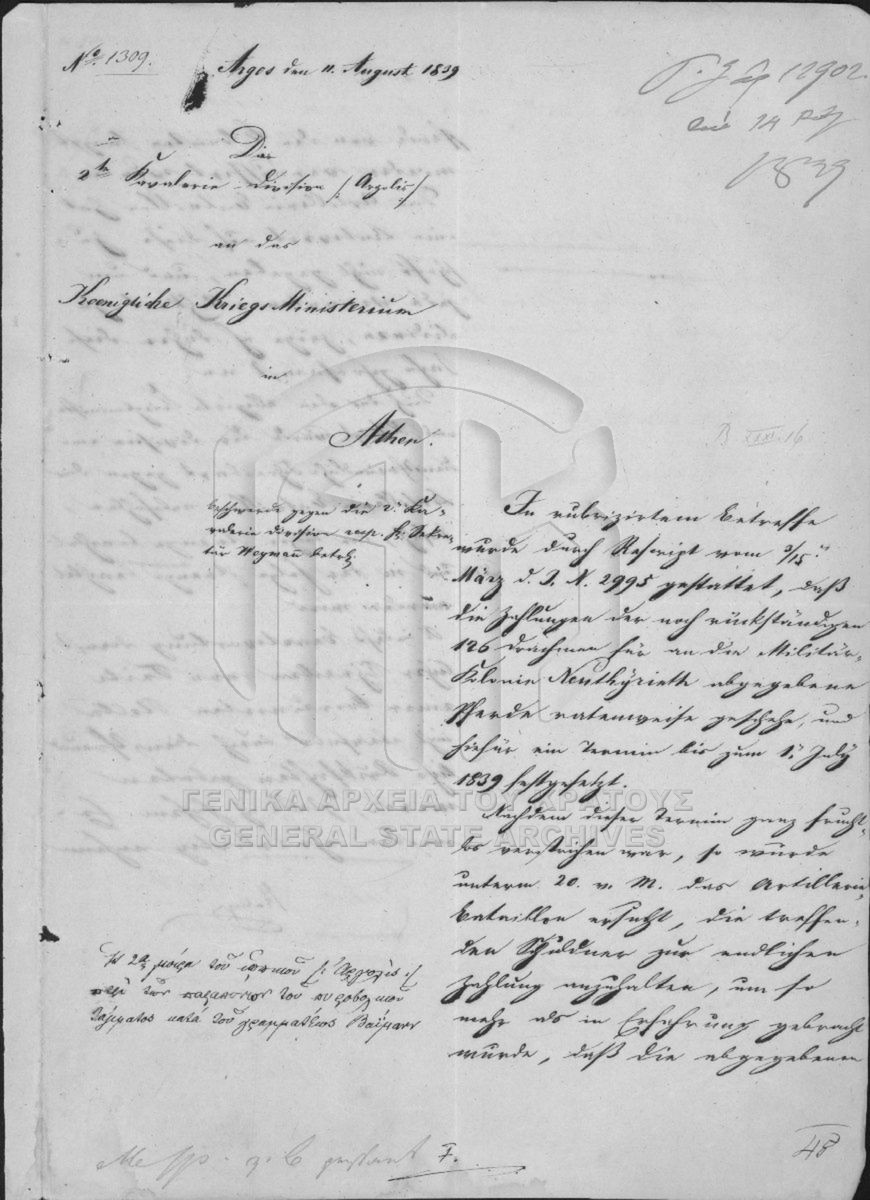 No. 1309.
Argos den 11. August 1839
12902
14
1839
Die
2te Kavalerie-Division /: Argolis :/
an das
Koenigliche Kriegs Ministerium
in
Athen.
B XXXI. 16
Beschwerde gegen die 2e Ka-
valerie Division resp. H: Sekre-
tär Weymañ betrfd
In rubrizirtem Betreffe
wurde durch Rescript vom 3/15ten
März d. J. N. 2995 gestattet, daß
die Zahlungen der noch rückständigen
126 Drachmen für an die Militär-
Kolonie Neuthÿrinth abgegebene
Pferde ratenweise geschehe, und
hiefür ein Termin bis zum 1n July
1839 festgesetzt.
Nachdem dieser Termin ganz frucht-
los verstrichen war, so wurde
unterm 20. v. M. das Artillerie-
bataillon ersucht, die treffen-
den Schuldner zur endlichen
Zahlung anzuhalten, um so
mehr als in Erfahrung gebracht
wurde, daß die abgegebenen
Ἡ 2α μοίρα τοῦ ἱππικοῦ /: Ἀργολίς :/
περὶ τῶν παραπόνων του πυροβολικοῦ
τάγματος κατὰ τοῦ γραμματέως Βαϊμανν
48
ΓΕΝΙΚΑ ΑΡΧΕΙΑ ΤΟΥ ΚΡΑΤΟΥΣ
GENERAL STATE ARCHIVES